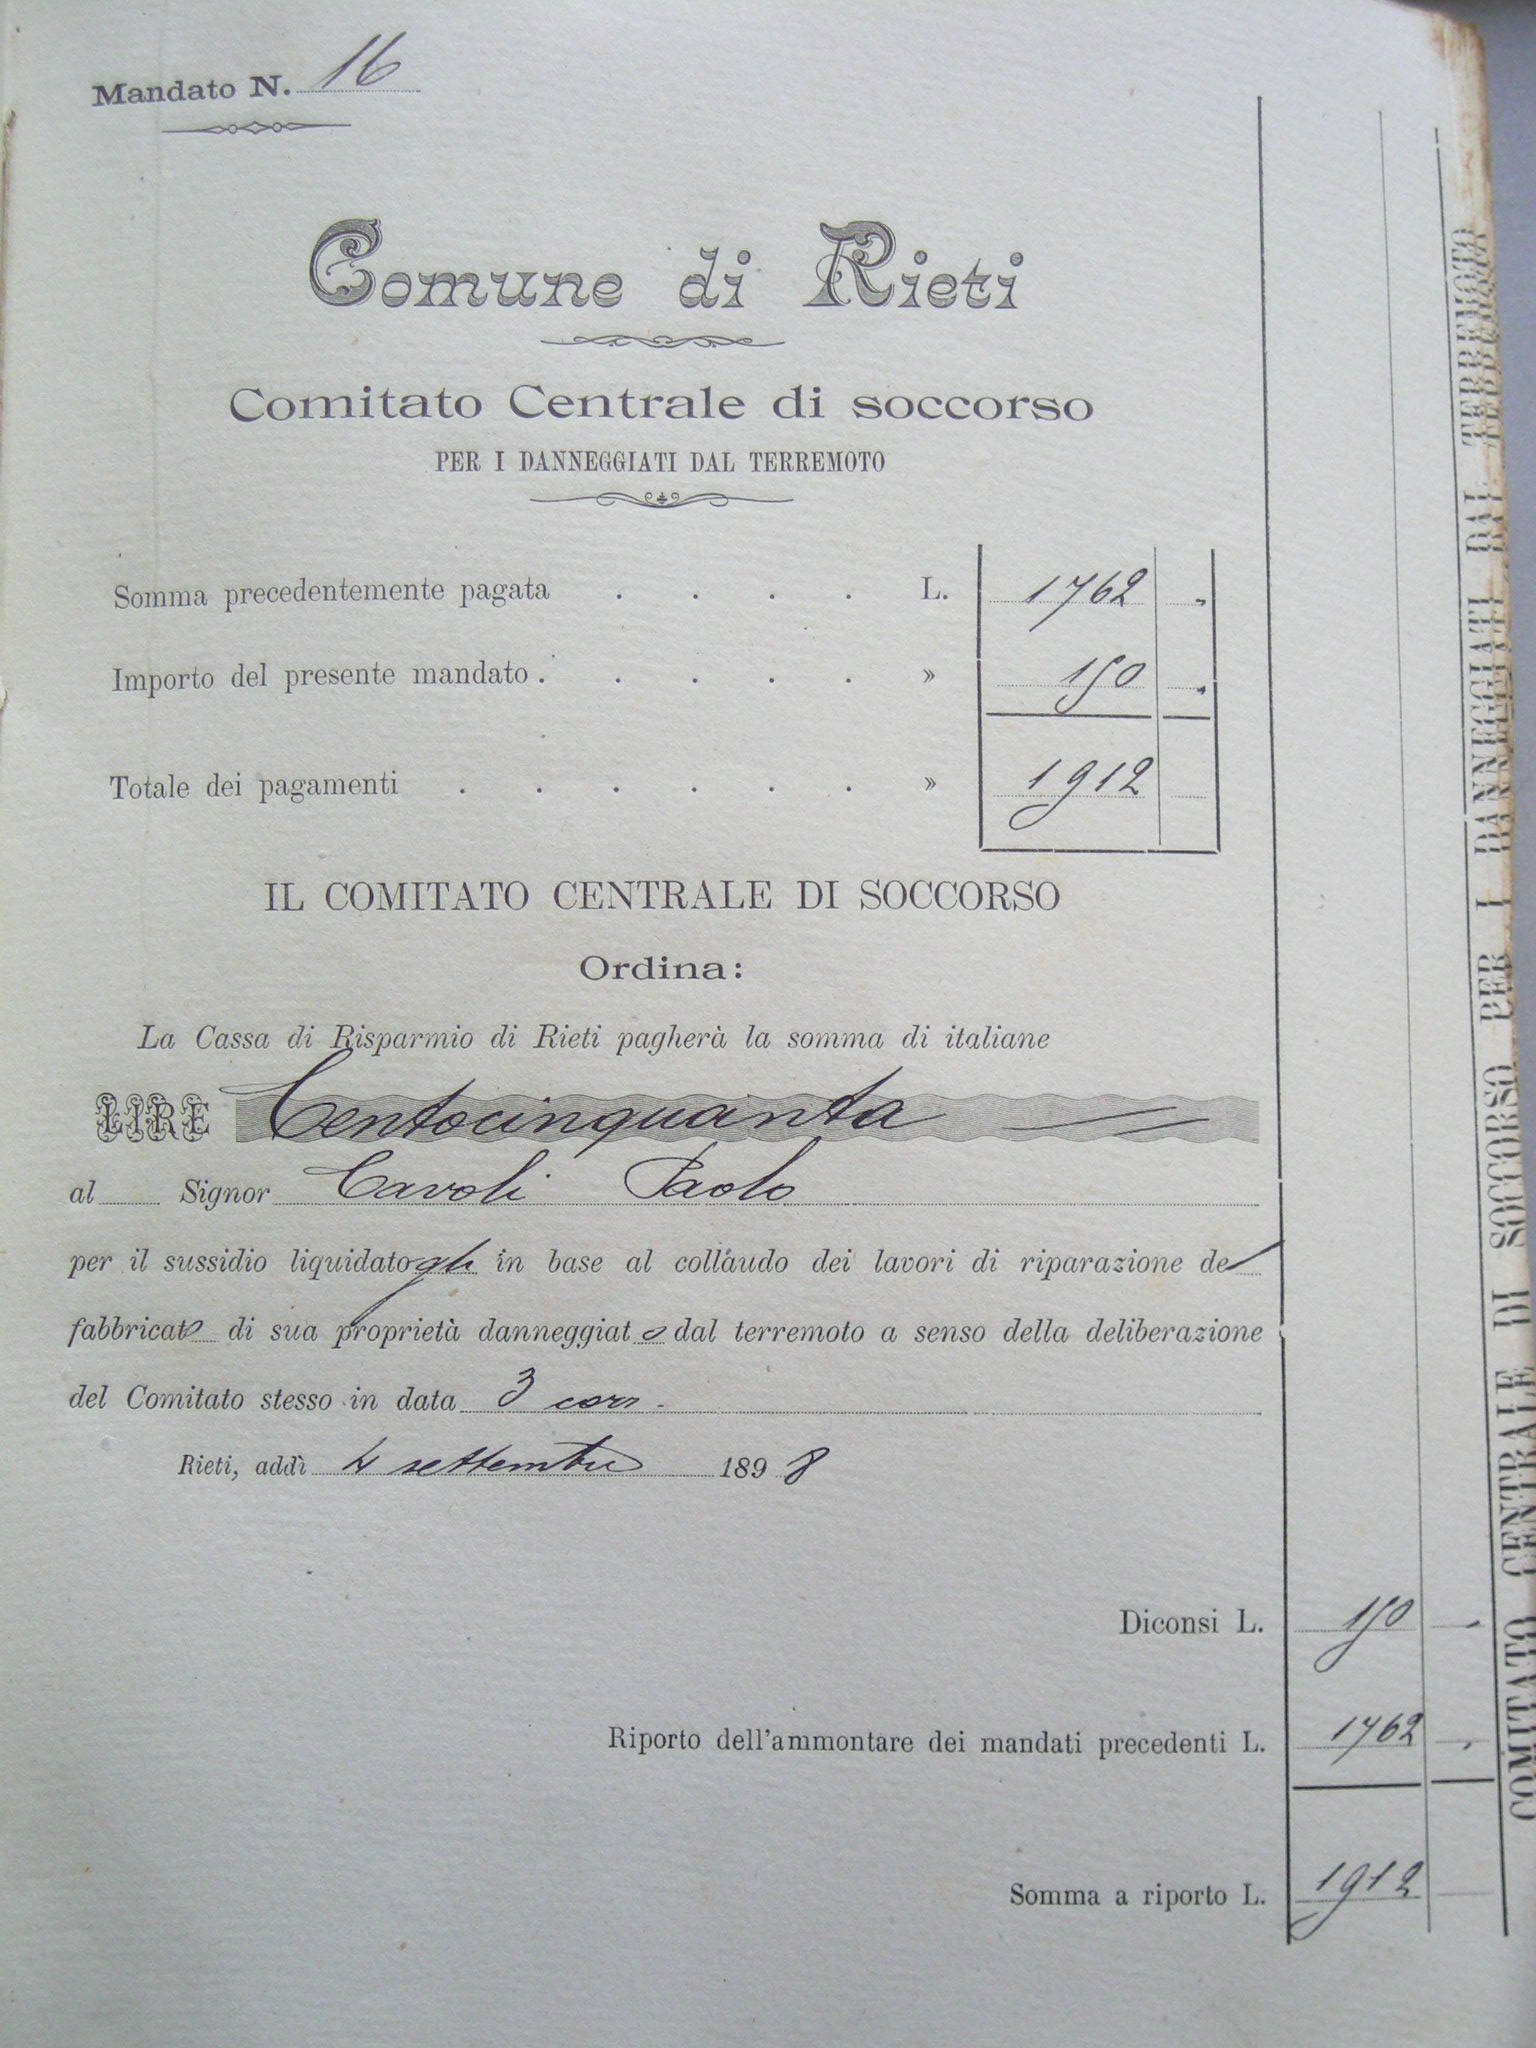 Mandato N. 16
Comune di Rieti
Comitato Centrale di soccorso
PER I DANNEGGIATI DAL TERREMOTO
Somma precedentemente pagata . . . . L. 1762 "
Importo del presente mandato . . . . . » 150 "
Totale dei pagamenti . . . . . . » 1912
IL COMITATO CENTRALE DI SOCCORSO
Ordina:
La Cassa di Risparmio di Rieti pagherà la somma di italiane
LIRE Centocinquanta
al Signor Cavoli Paolo
per il sussidio liquidatogli in base al collaudo dei lavori di riparazione del
fabbricato di sua proprietà danneggiato dal terremoto a senso della deliberazione
del Comitato stesso in data 3 corr.
Rieti, addì 4 settembre 1898
Diconsi L. 150
Riporto dell'ammontare dei mandati precedenti L. 1762
Somma a riporto L. 1912
COMITATO CENTRALE DI SOCCORSO PER I DANNEGGIATI DAL TERREMOTO